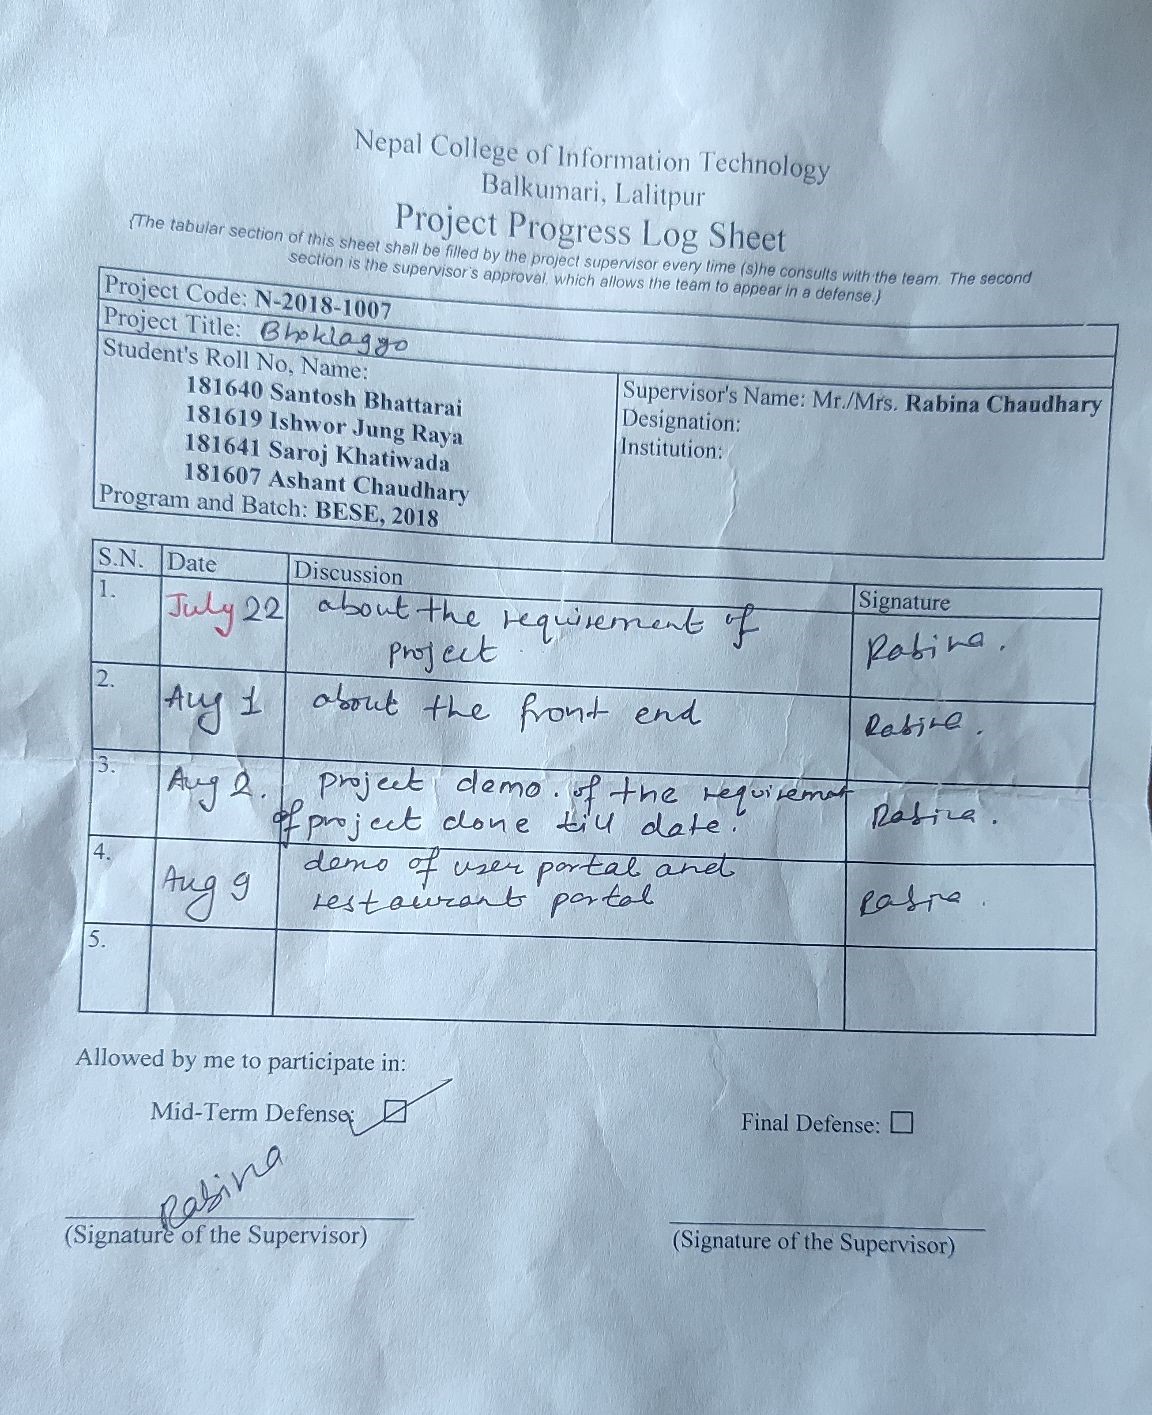 Nepal College of Information Technology
Balkumari, Lalitpur
Project Progress Log Sheet
{The tabular section of this sheet shall be filled by the project supervisor every time (s)he consults with the team. The second
section is the supervisor's approval, which allows the team to appear in a defense.}
Project Code: N-2018-1007
Project Title: Bhoklaggo
Student's Roll No, Name:
181640 Santosh Bhattarai
181619 Ishwor Jung Raya
181641 Saroj Khatiwada
181607 Ashant Chaudhary
Program and Batch: BESE, 2018
Supervisor's Name: Mr./Mrs. Rabina Chaudhary
Designation:
Institution:
S.N. Date Discussion Signature
1. July 22 about the requirement of
project Rabina.
2. Aug 1 about the front end Rabina.
3. Aug 2. project demo. of the requirement
of project done till date. Rabina.
4. Aug 9 demo of user portal and
restaurant portal Rabina.
5.
Allowed by me to participate in:
Mid-Term Defense:
Final Defense:
Rabina
(Signature of the Supervisor)
(Signature of the Supervisor)